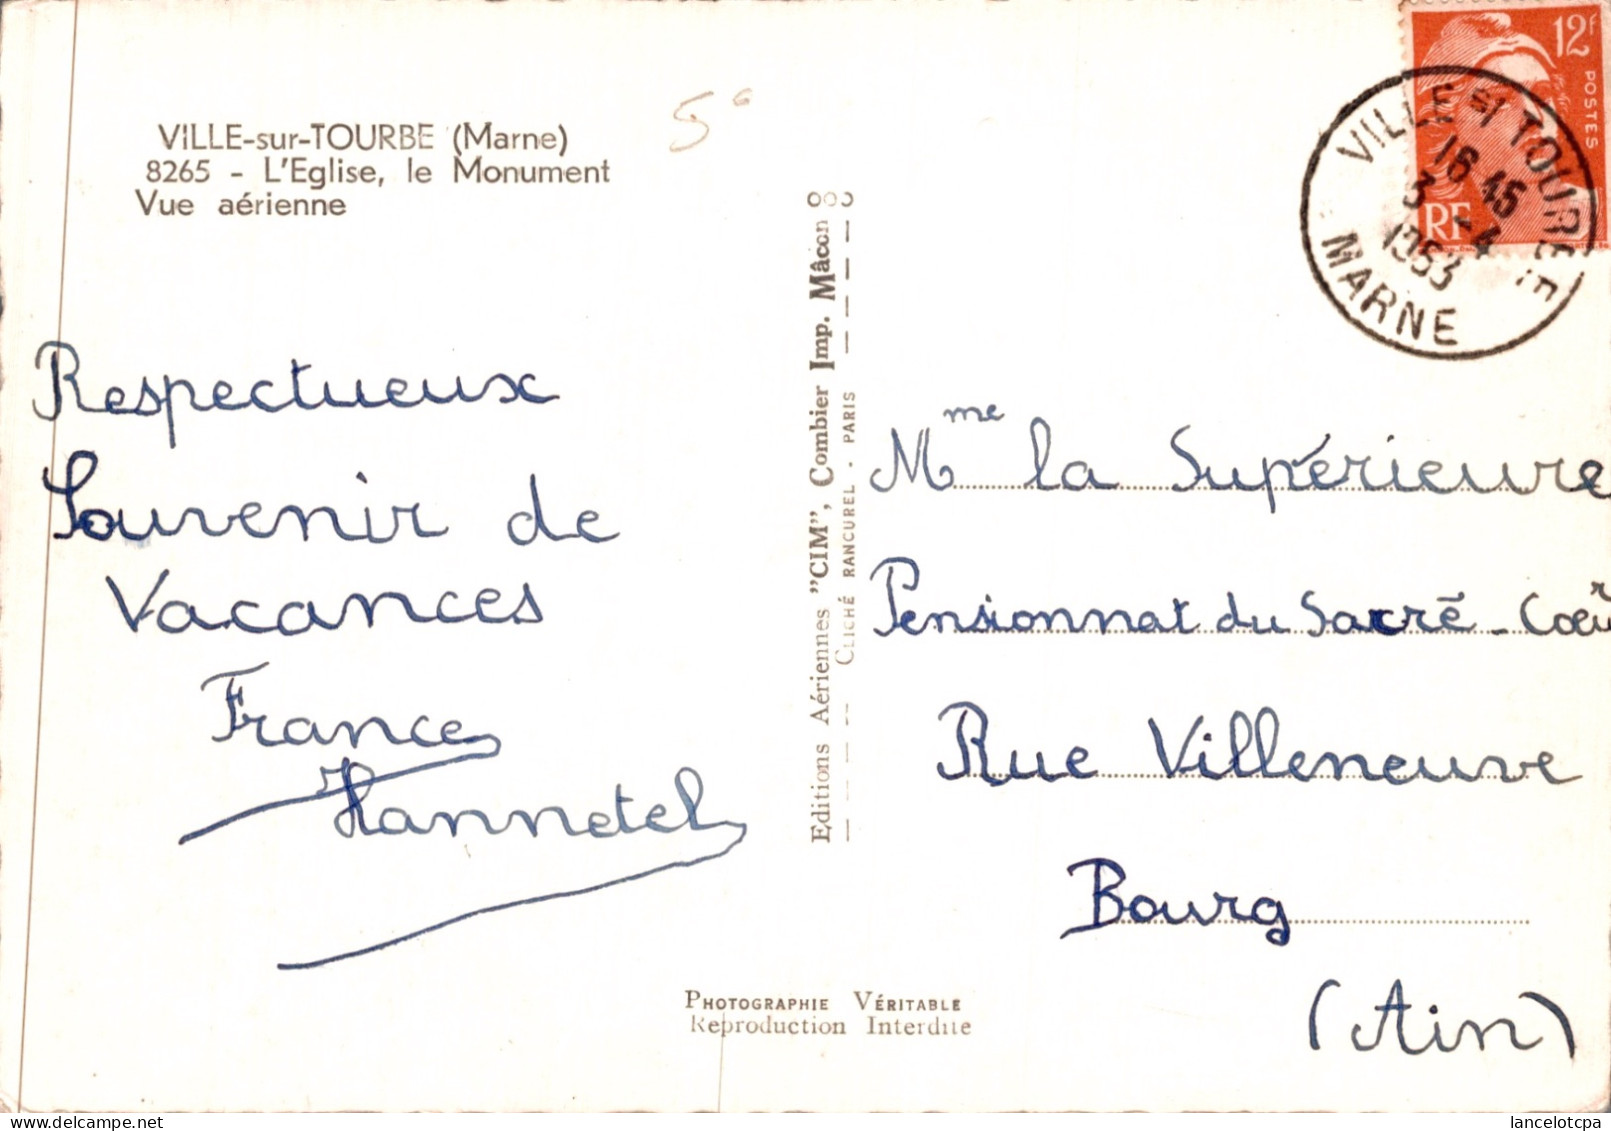 VILLE-sur-TOURBE (Marne)
8265 - L'Eglise, le Monument
Vue aérienne
5
Respectueux
Souvenir de
Vacances
France
Hannetel
Editions Aériennes "CIM", Combier Imp. Mâcon
CLICHÉ RANCUREL . PARIS
12F
POSTES
RF
VILLE s/ TOURBE
16 45
3 -4
1953
MARNE
Mme la Supérieure
Pensionnat du Sacré-Coeur
Rue Villeneuve
Bourg
(Ain)
PHOTOGRAPHIE VÉRITABLE
Reproduction Interdite
lancelotcpa